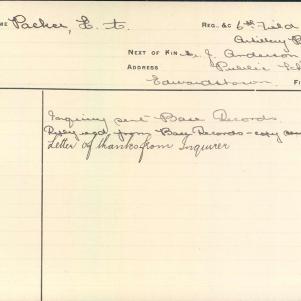 ME Packer, L. A. REG. &C 6th Field
Artillery B
NEXT OF KIN J. Anderson
ADDRESS Public Sch
Edwardstown FI
Inquiry sent Base Records.
Reply recd. from Base Records - copy sen
Letter of thanks from Inquirer